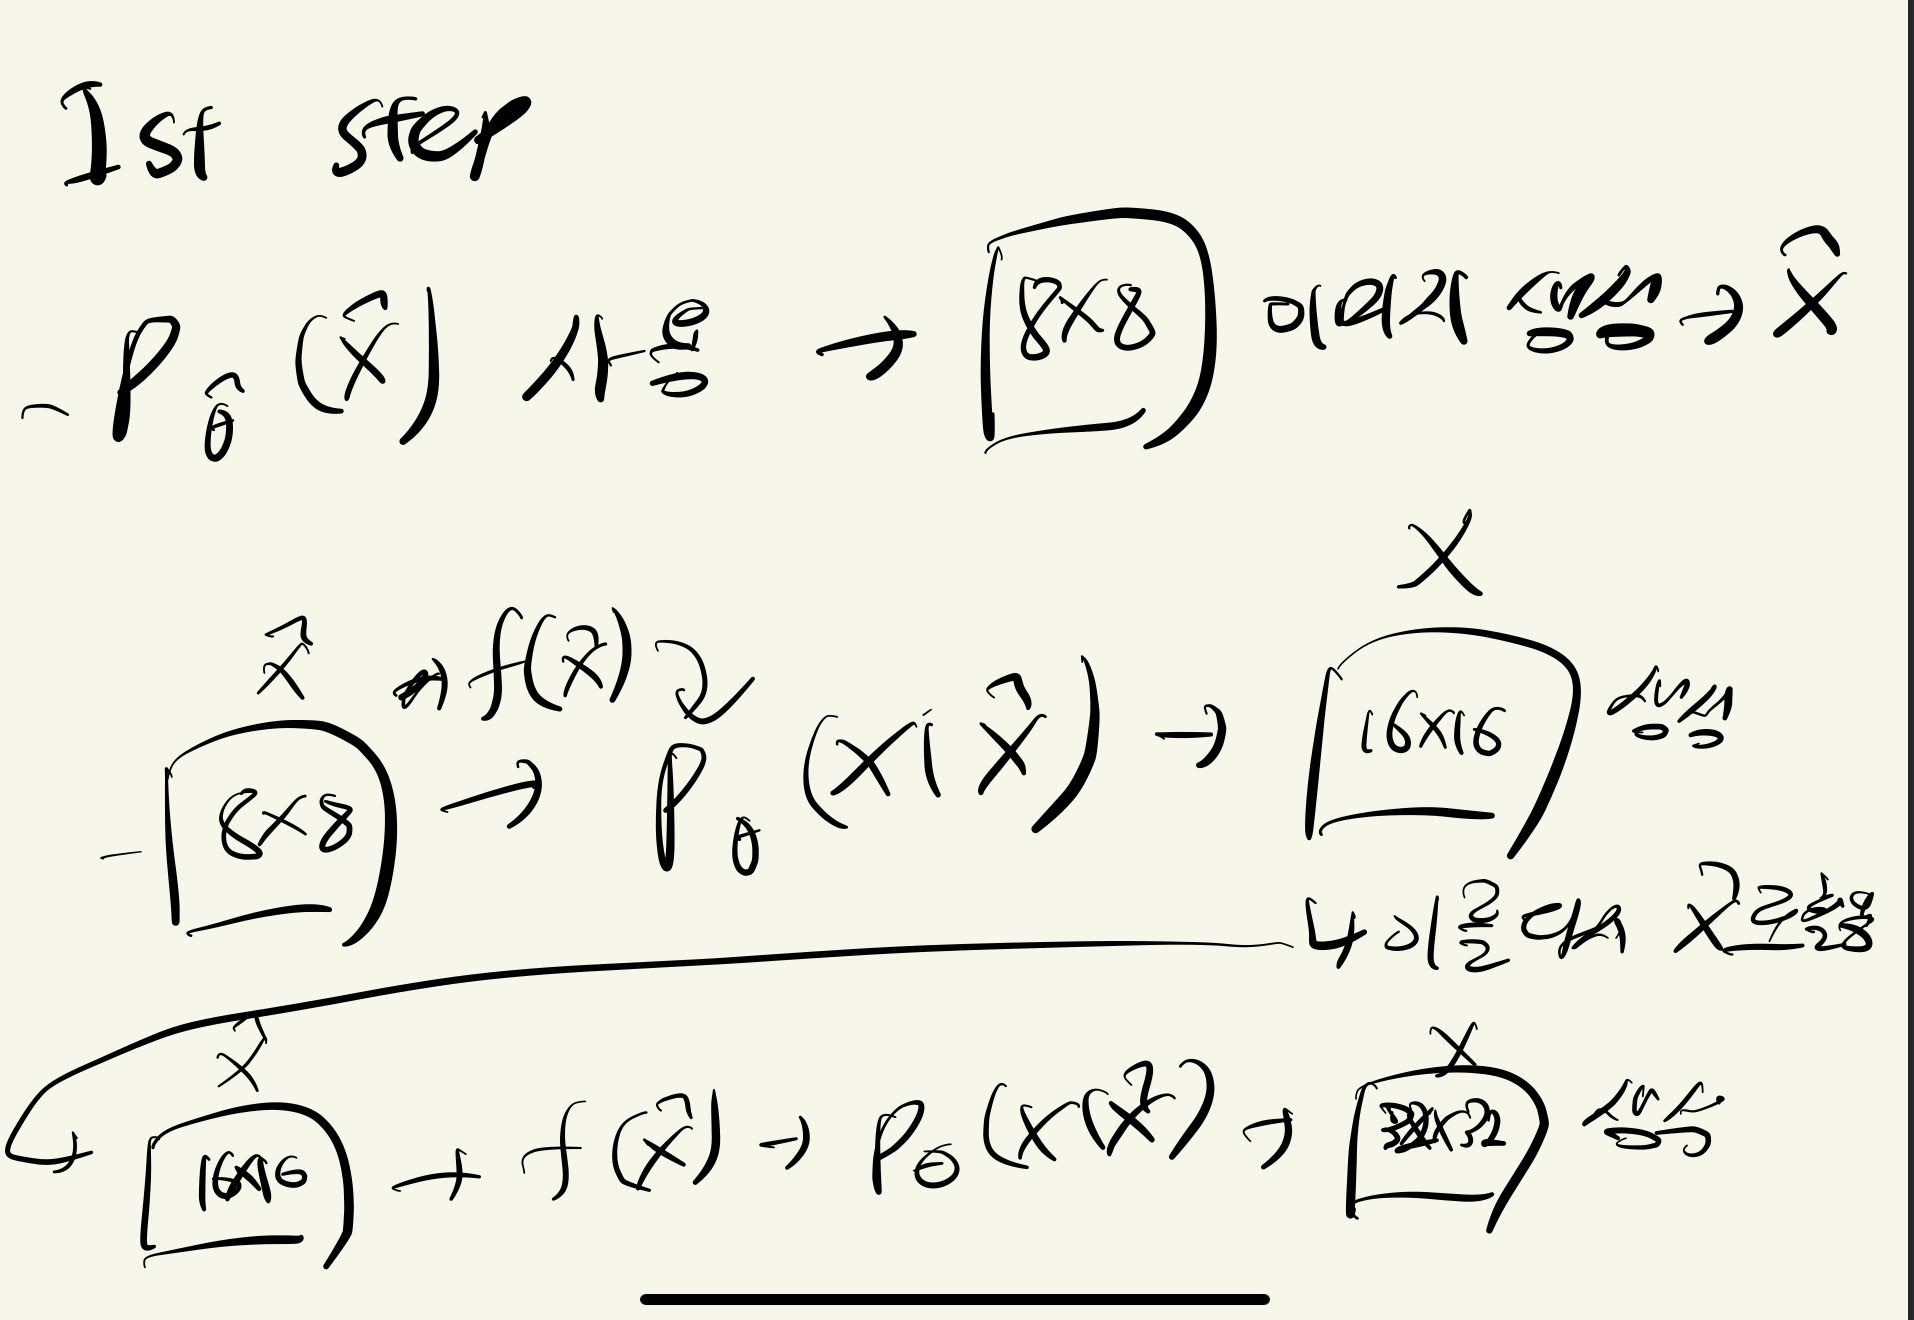 1st step
- P_θ̂ (x̂) 사용 → 8×8 이미지 생성 → x̂
x̂ f(x̂) X
- 8×8 → P_θ (x | x̂) → 16×16 생성
↳ 이를 다시 x̂로
x̂ X
16×16 → f(x̂) → P_θ (x | x̂) → 32×32 생성